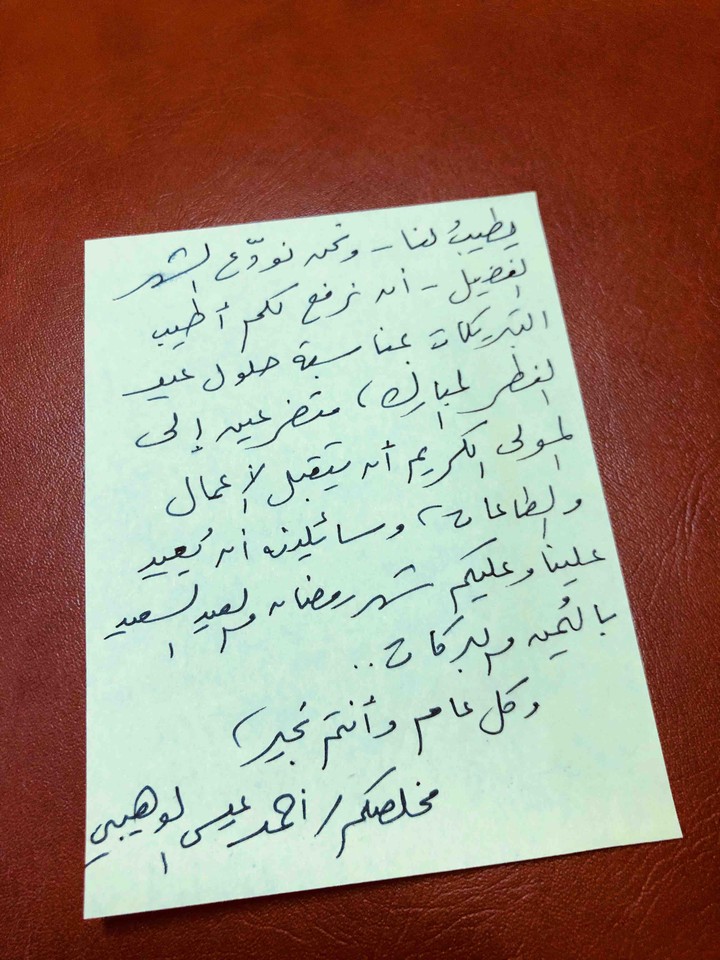 يطيبُ لنا - ونحن نودّع الشهر
الفضيل - أن نرفع لكم أطيب
التبريكات بمناسبة حلول عيد
الفطر المبارك، متضرعين إلى
المولى الكريم أن يتقبل الأعمال
والطاعات، وسائلينه أن يُعيد
علينا وعليكم شهر رمضان والعيد السعيد
باليُمن والبركات..
وكل عام وأنتم بخير،
مخلصكم/ أحمد عيسى الوهيبي